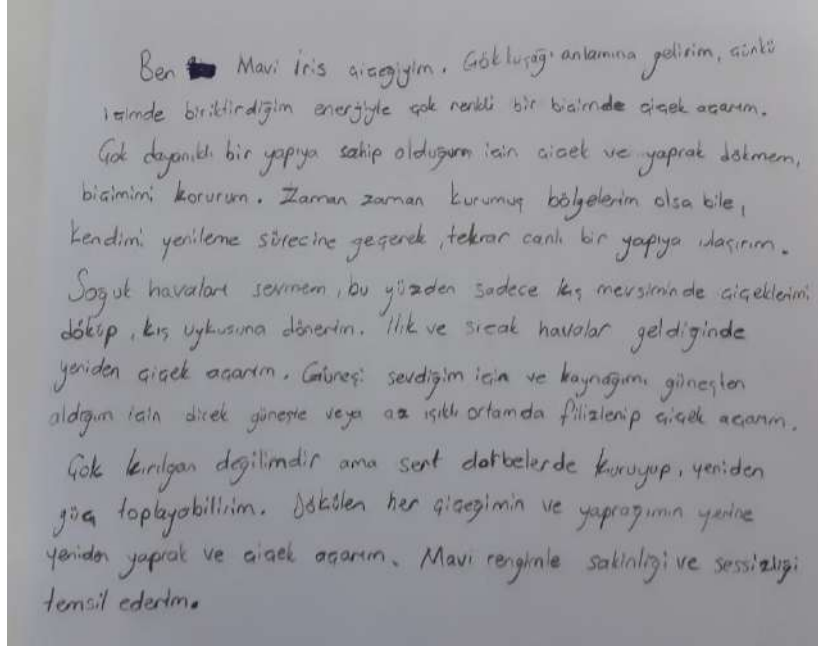 Ben Mavi İris çiçeğiyim. Gökkuşağı anlamına gelirim, çünkü
içimde biriktirdiğim enerjiyle çok renkli bir biçimde çiçek açarım.
Çok dayanıklı bir yapıya sahip olduğum için çiçek ve yaprak dökmem,
biçimimi korurum. Zaman zaman kurumuş bölgelerim olsa bile,
kendimi yenileme sürecine geçerek, tekrar canlı bir yapıya ulaşırım.
Soğuk havaları sevmem, bu yüzden sadece kış mevsiminde çiçeklerimi
döküp, kış uykusuna dönerim. Ilık ve sıcak havalar geldiğinde
yeniden çiçek açarım. Güneşi sevdiğim için ve kaynağımı güneşten
aldığım için direk güneşte veya az ışıklı ortamda filizlenip çiçek açarım.
Çok kırılgan değilimdir ama sert darbelerde kuruyup, yeniden
güç toplayabilirim. Dökülen her çiçeğimin ve yaprağımın yerine
yeniden yaprak ve çiçek açarım. Mavi rengimle sakinliği ve sessizliği
temsil ederim.